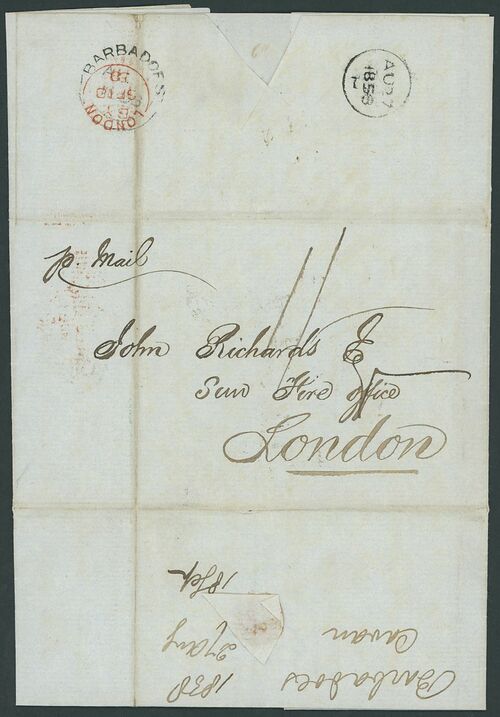 BARBADOES
LONDON
AU 27
1858
p. Mail
John Richards E
Sun Fire office
London
1858
27 Aug
18 Sep
Barbadoes
Cavan